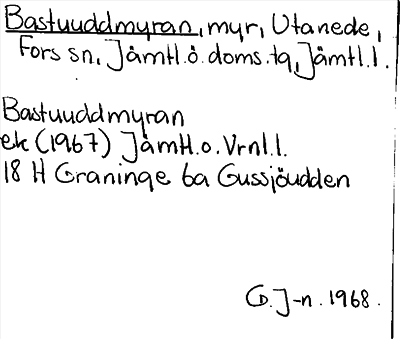 Bastuuddmyran, myr, Utanede,
Fors sn, Jämtl.ö.doms.tg, Jämtl.l.
Bastuuddmyran
ek (1967) Jämtl.o.Vrnl.l.
18 H Graninge 6a Gussjöudden
G.J-n. 1968.